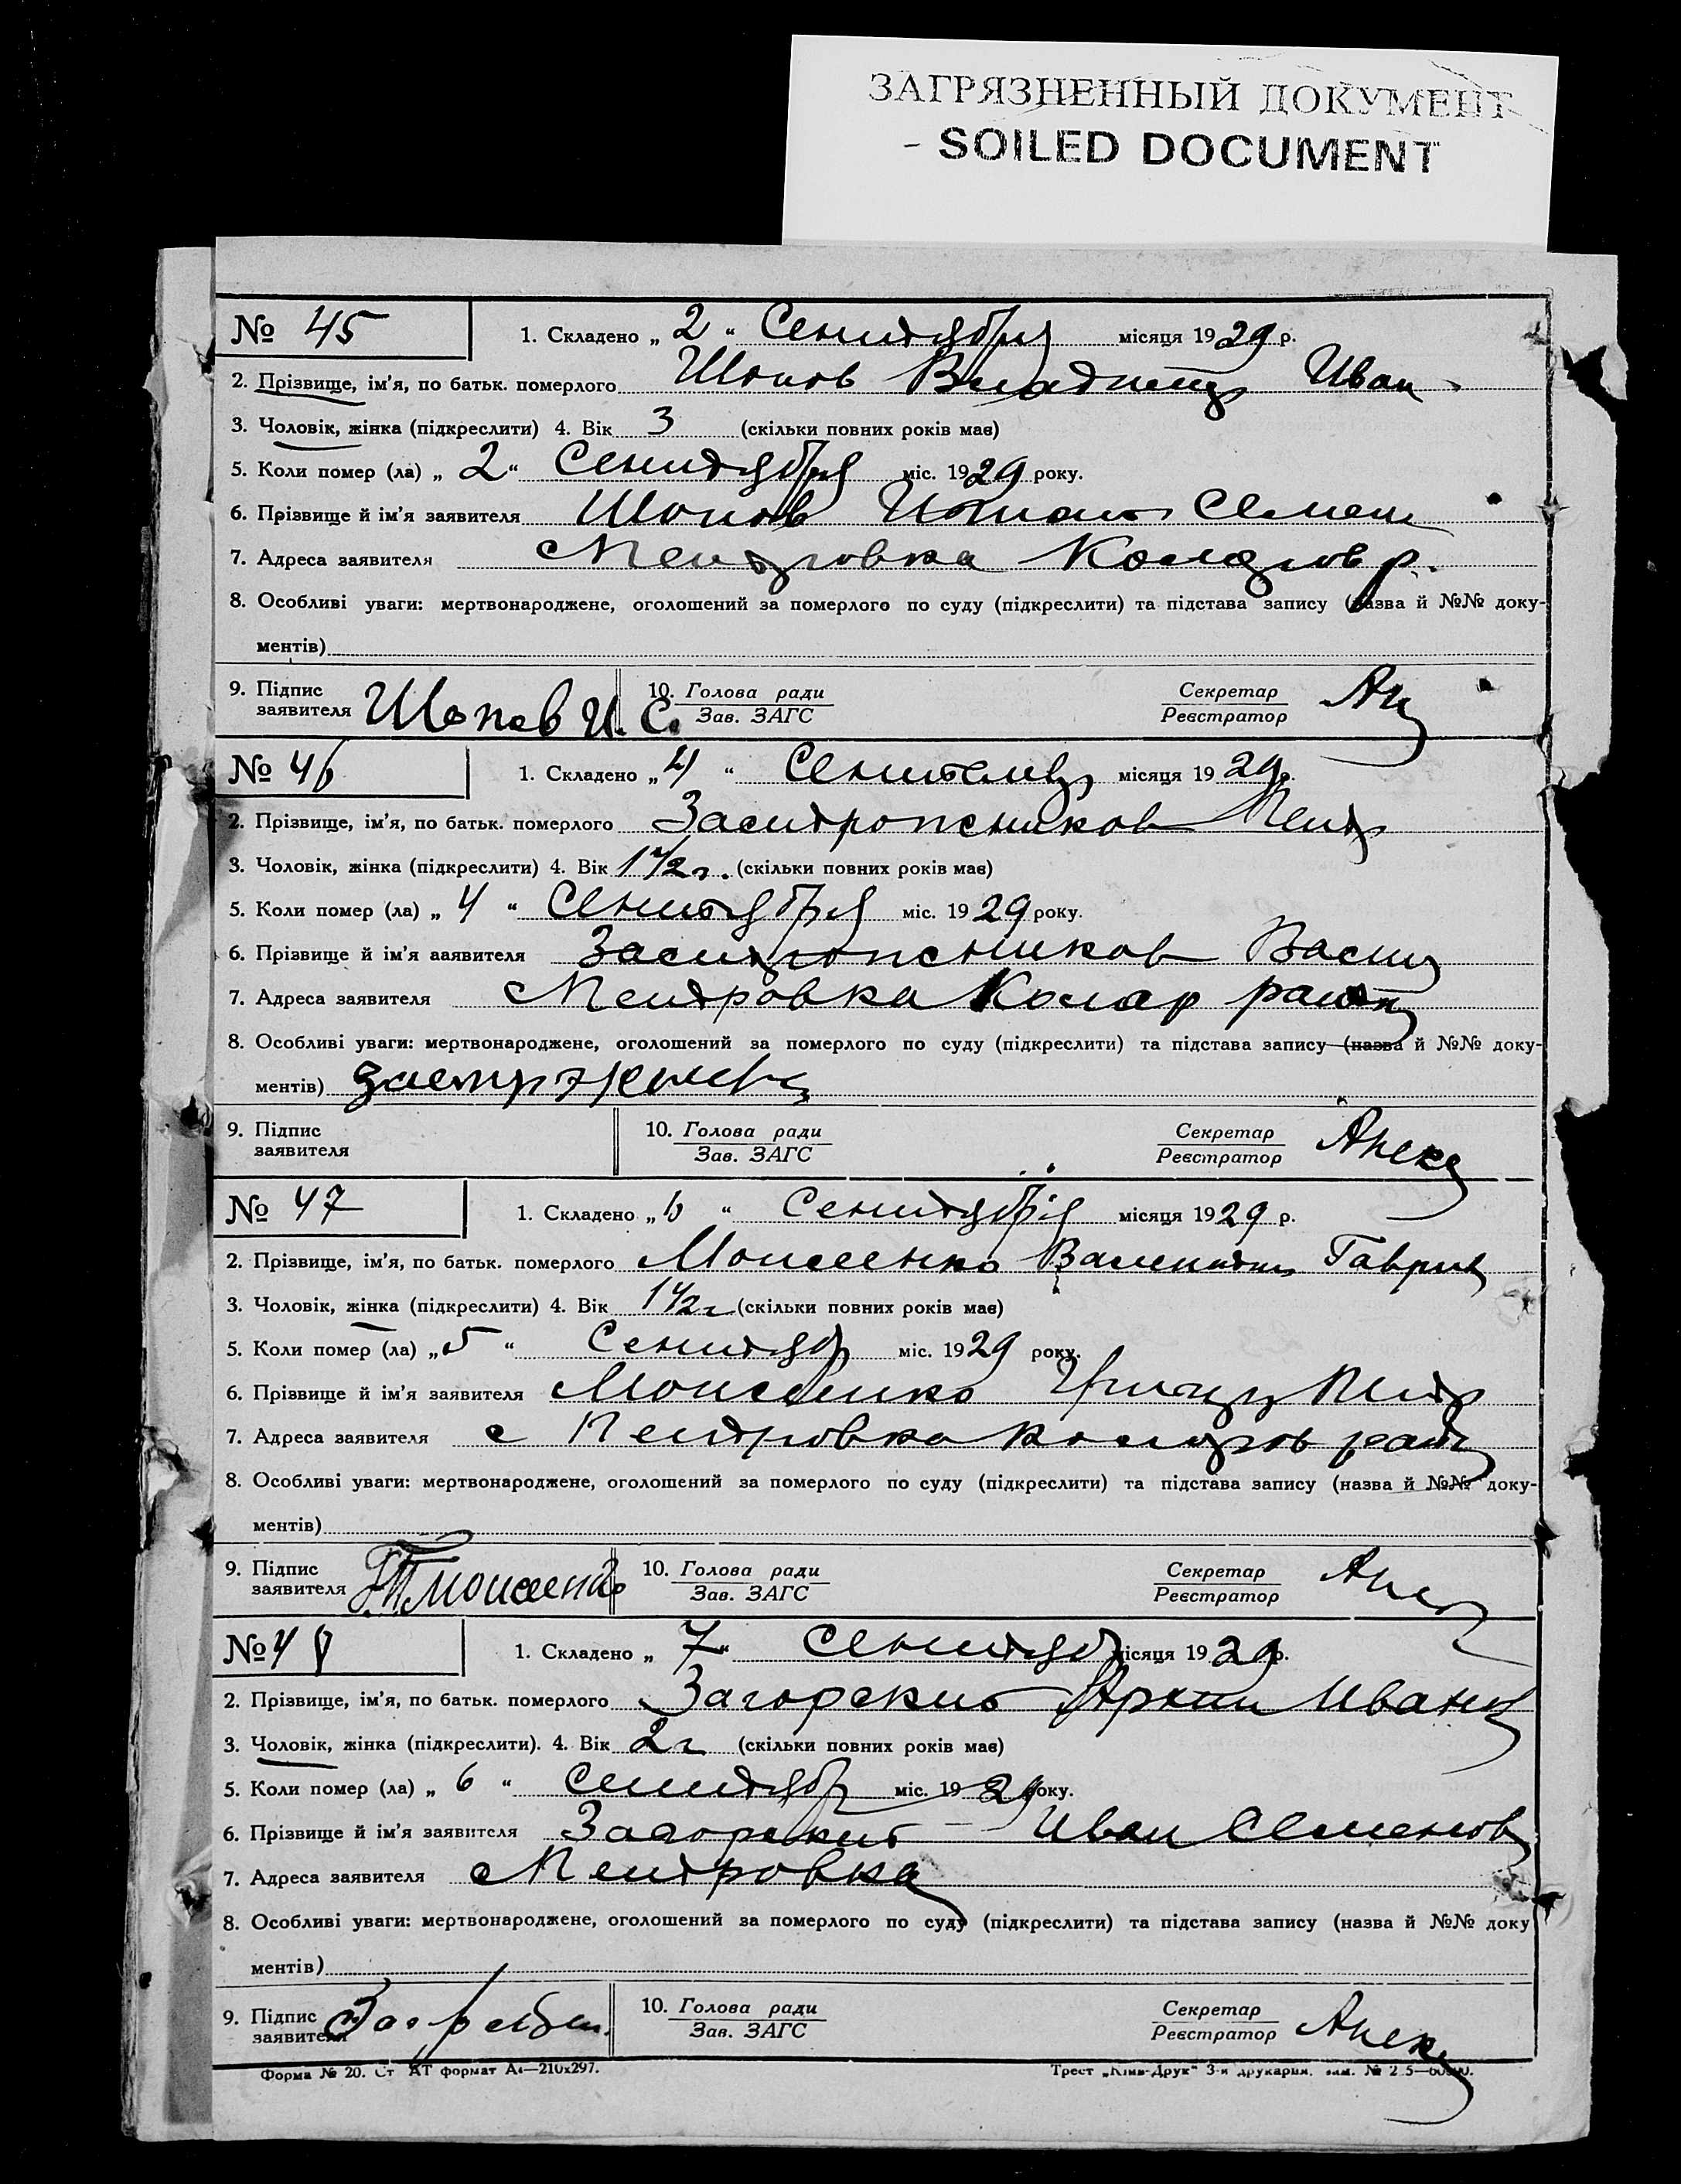 ЗАГРЯЗНЕННЫЙ ДОКУМЕНТ
- SOILED DOCUMENT
№ 45 1. Складено „ 2 “ Сентября місяця 1929 р.
2. Прізвище, ім’я, по батьк. померлого Шопов Владимир Иван
3. Чоловік, жінка (підкреслити) 4. Вік 3 (скільки повних років має)
5. Коли помер (ла) „ 2 “ Сентября міс. 1929 року.
6. Прізвище й ім’я заявителя Шопов Семен
7. Адреса заявителя с Петровка Коларов р.
8. Особливі уваги: мертвонароджене, оголошений за померлого по суду (підкреслити) та підстава запису (назва й №№ доку-
ментів)
9. Підпис заявителя Шопов И. С. 10. Голова ради Зав. ЗАГС Секретар Реєстратор
№ 46 1. Складено „ 4 “ місяця 1929 р.
2. Прізвище, ім’я, по батьк. померлого Застрожников Петр
3. Чоловік, жінка (підкреслити) 4. Вік 1 1/2 г. (скільки повних років має)
5. Коли помер (ла) „ 4 “ Сентября міс. 1929 року.
6. Прізвище й ім’я заявителя Застрожников Васил
7. Адреса заявителя с Петровка Колар район
8. Особливі уваги: мертвонароджене, оголошений за померлого по суду (підкреслити) та підстава запису (назва й №№ доку-
ментів)
9. Підпис заявителя 10. Голова ради Зав. ЗАГС Секретар Реєстратор
№ 47 1. Складено „ 6 “ Сентября місяця 1929 р.
2. Прізвище, ім’я, по батьк. померлого Моисеенко Валентин Гаврил
3. Чоловік, жінка (підкреслити) 4. Вік 1 1/2 г (скільки повних років має)
5. Коли помер (ла) „ 5 “ Сентябр міс. 1929 року.
6. Прізвище й ім’я заявителя Моисеенко Петр
7. Адреса заявителя с Петровка Коларов район
8. Особливі уваги: мертвонароджене, оголошений за померлого по суду (підкреслити) та підстава запису (назва й №№ доку-
ментів)
9. Підпис заявителя Моисеенко 10. Голова ради Зав. ЗАГС Секретар Реєстратор
№ 48 1. Складено „ 7 “ Сентяб місяця 1929 р.
2. Прізвище, ім’я, по батьк. померлого Загорский Иванов
3. Чоловік, жінка (підкреслити). 4. Вік 2 г (скільки повних років має)
5. Коли помер (ла) „ 6 “ Сентябр міс. 1929 року.
6. Прізвище й ім’я заявителя Загорский Иван Семенов
7. Адреса заявителя с Петровка
8. Особливі уваги: мертвонароджене, оголошений за померлого по суду (підкреслити) та підстава запису (назва й №№ доку
ментів)
9. Підпис заявителя 10. Голова ради Зав. ЗАГС Секретар Реєстратор
Форма № 20. Ст АТ формат А4—210х297. Трест „Київ-Друк“ 3-я друкарня.